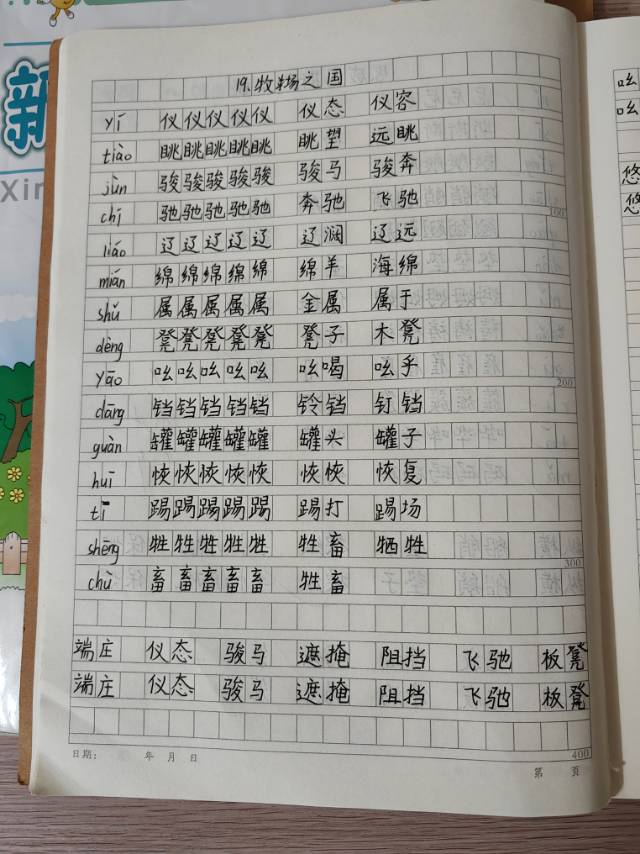 19.牧场之国
yí 仪仪仪仪仪 仪态 仪容
tiào 眺眺眺眺眺 眺望 远眺
jùn 骏骏骏骏骏 骏马 骏奔
chí 驰驰驰驰驰 奔驰 飞驰
liáo 辽辽辽辽辽 辽润 辽远
mián 绵绵绵绵绵 绵羊 海绵
shǔ 属属属属属 金属 属于
dèng 凳凳凳凳凳 凳子 木凳
yāo 吆吆吆吆吆 吆喝 吆乎
dāng 铛铛铛铛铛 铃铛 钉铛
guàn 罐罐罐罐罐 罐头 罐子
huī 恢恢恢恢恢 恢恢 恢复
tī 踢踢踢踢踢 踢打 踢场
shēng 牲牲牲牲牲 牲畜 牺牲
chù 畜畜畜畜畜 牲畜
端庄 仪态 骏马 遮掩 阻挡 飞驰 板凳
端庄 仪态 骏马 遮掩 阻挡 飞驰 板凳
日期: 年 月 日 第 页
100
200
300
400
新
Xin
吆
吆
悠
悠